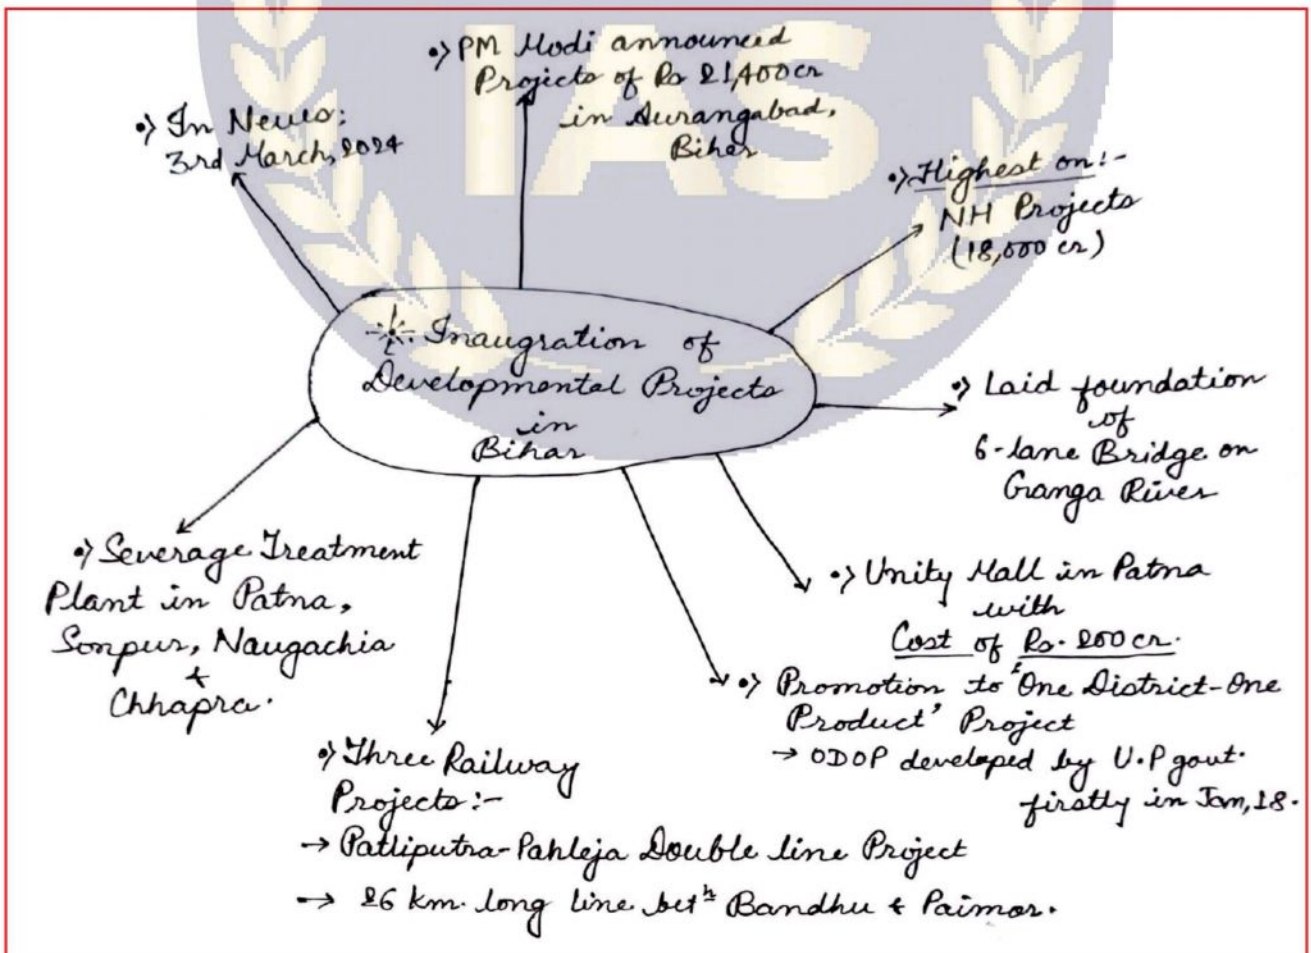 IAS
•› PM Modi announced
Projects of Rs 21,400 cr
in Aurangabad,
Bihar
•› In News:
3rd March, 2024
•› Highest on:-
NH Projects
(18,000 cr)
Inaugration of
Developmental Projects
in
Bihar
•› Laid foundation
of
6-lane Bridge on
Ganga River
•› Unity Mall in Patna
with
Cost of Rs. 200 cr.
•› Promotion to 'One District-One
Product' Project
→ ODOP developed by U.P govt.
firstly in Jan, 18.
•› Severage Treatment
Plant in Patna,
Sonpur, Naugachia
&
Chhapra.
•› Three Railway
Projects:-
→ Patliputra-Pahleja Double line Project
→ 26 km. long line betⁿ Bandhu & Paimar.